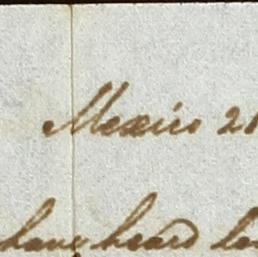 Mexico 21
have heard